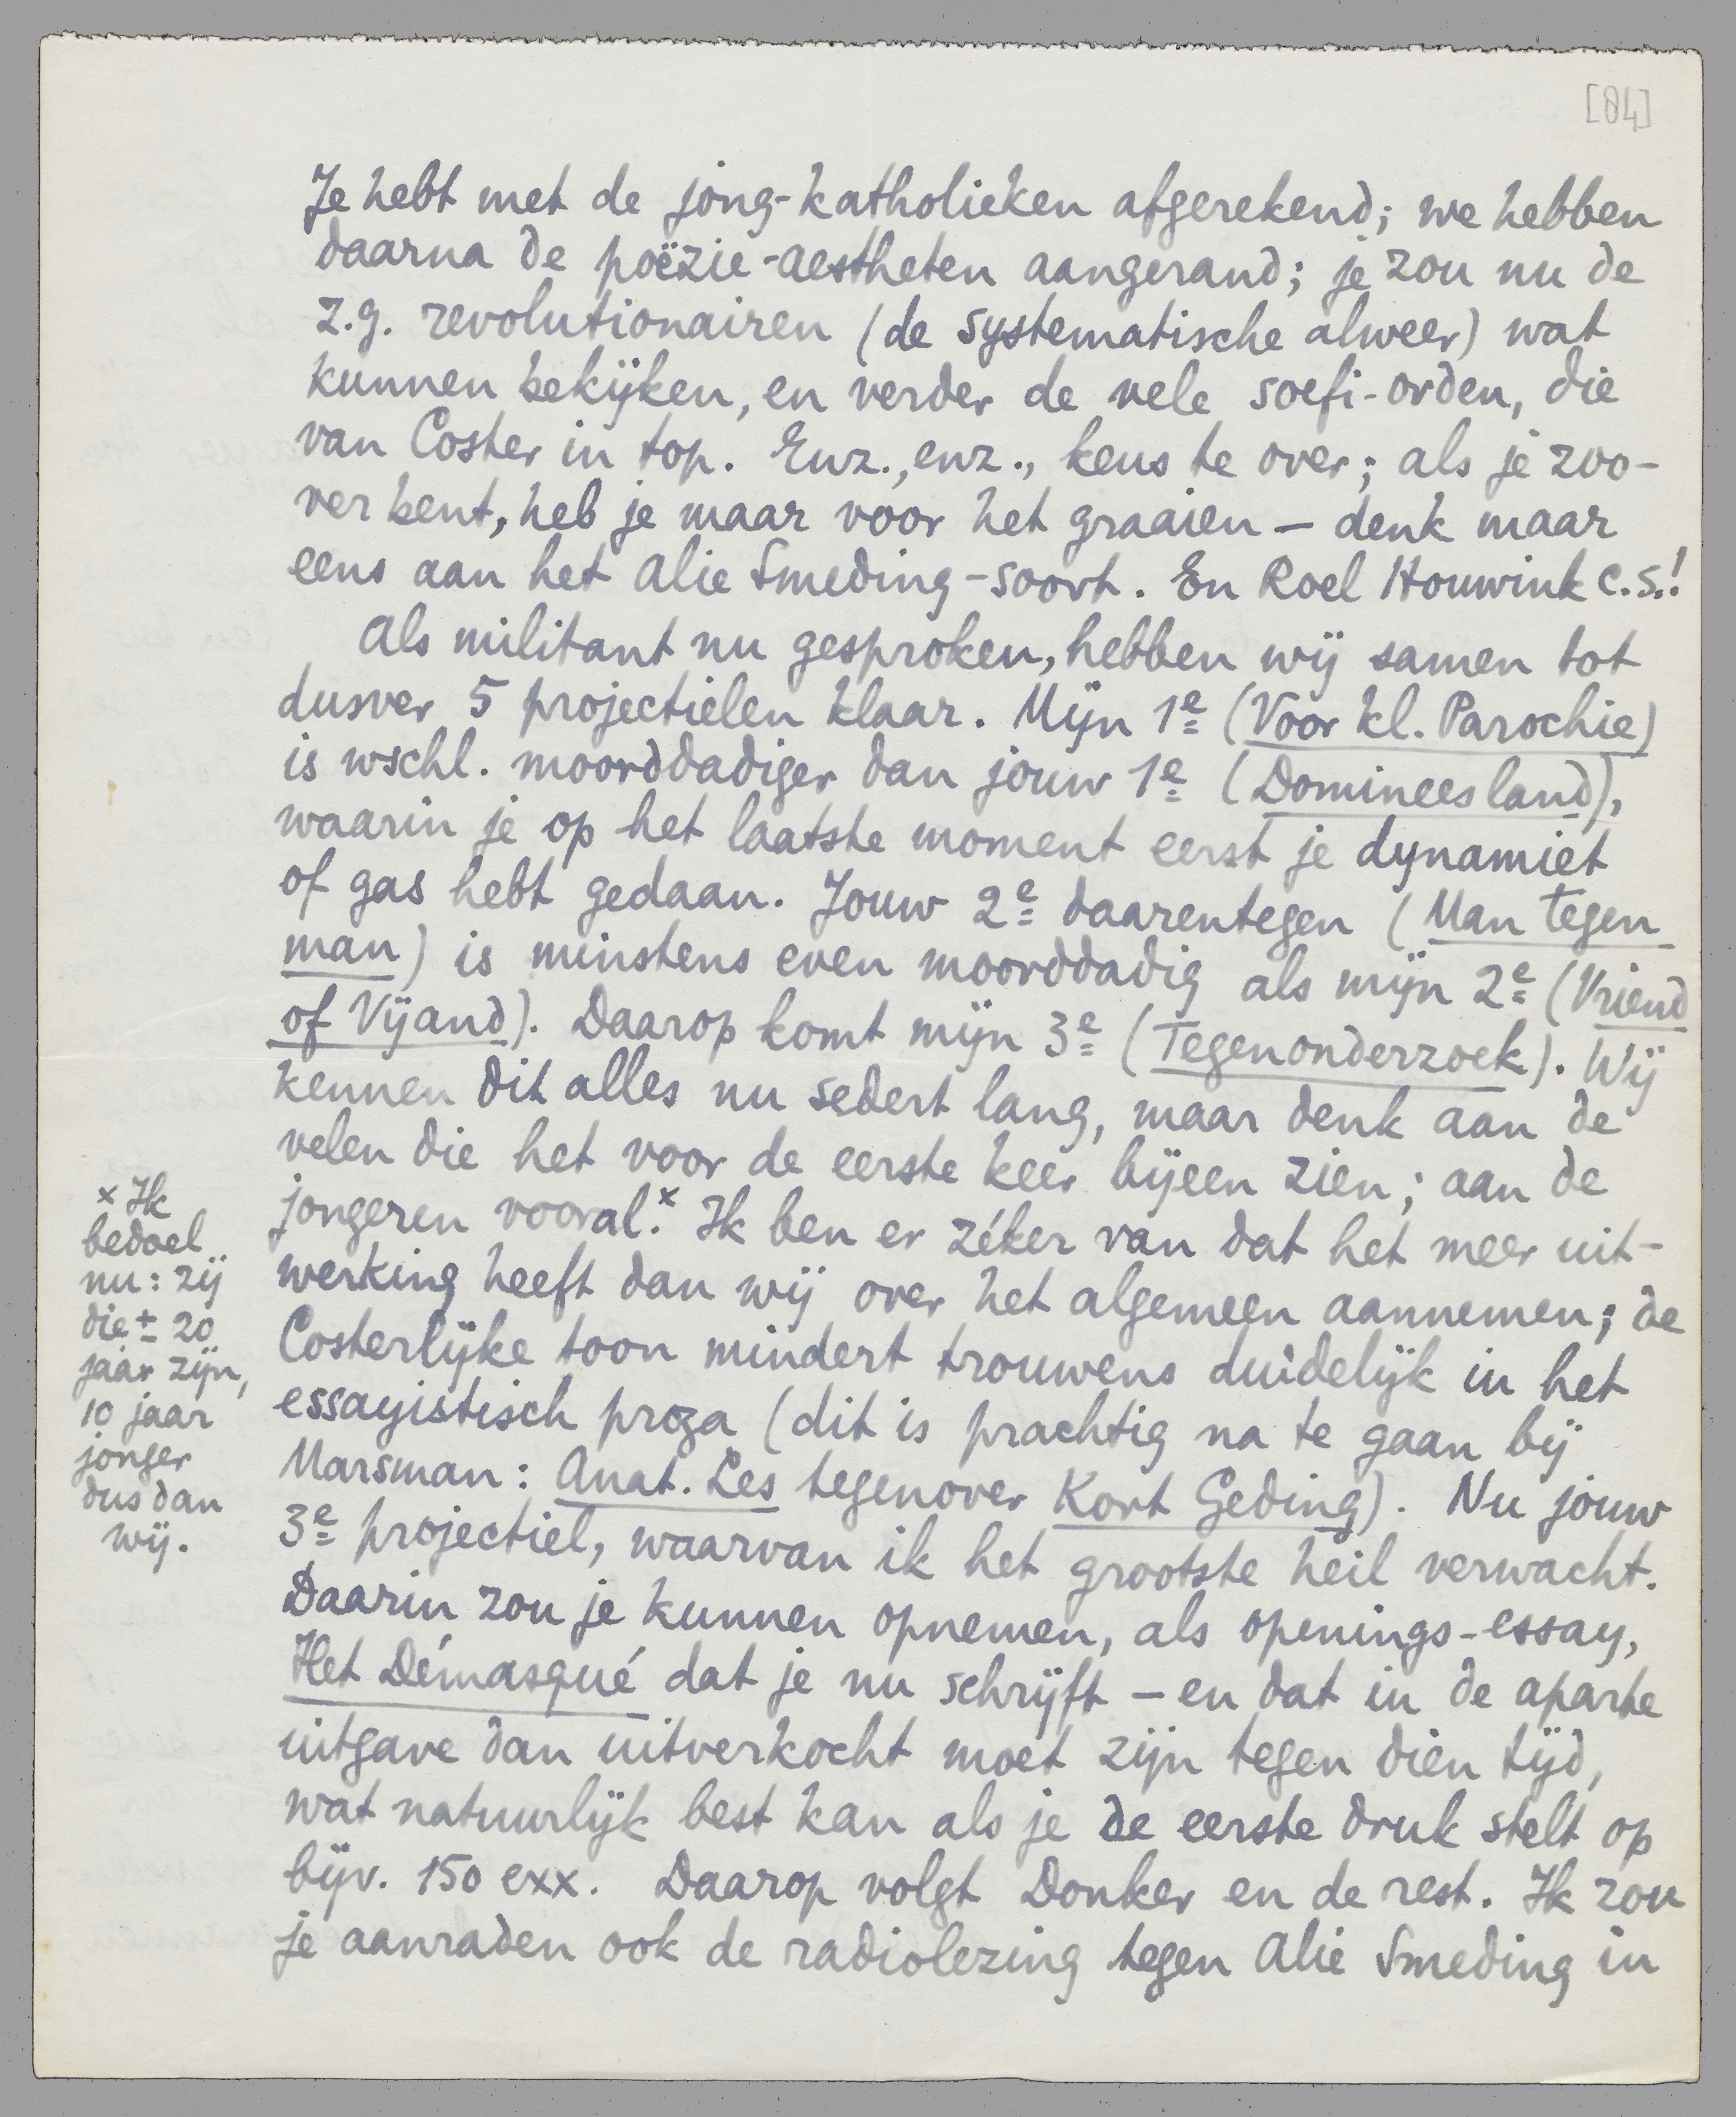 [84]
Je hebt met de jong-katholieken afgerekend; we hebben
daarna de poëzie-aestheten aangerand; je zou nu de
z.g. revolutionairen (de systematische alweer) wat
kunnen bekijken, en verder de vele soefi-orden, die
van Coster in top. Enz., enz., keus te over; als je zoo-
ver bent, heb je maar voor het graaien — denk maar
eens aan het Alie Smeding-soort. En Roel Houwink c.s.!
Als militant nu gesproken, hebben wij samen tot
dusver 5 projectielen klaar. Mijn 1e (Voor kl. Parochie)
is wschl. moorddadiger dan jouw 1e (Domineesland),
waarin je op het laatste moment eerst je dynamiet
of gas hebt gedaan. Jouw 2e daarentegen (Man tegen
man) is minstens even moorddadig als mijn 2e (Vriend
of Vijand). Daarop komt mijn 3e (Tegenonderzoek). Wij
kennen dit alles nu sedert lang, maar denk aan de
velen die het voor de eerste keer bijeen zien; aan de
jongeren vooral.x Ik ben er zéker van dat het meer uit-
werking heeft dan wij over het algemeen aannemen; de
Costerlijke toon mindert trouwens duidelijk in het
essayistisch proza (dit is prachtig na te gaan bij
Marsman: Anat. Les tegenover Kort Geding). Nu jouw
3e projectiel, waarvan ik het grootste heil verwacht.
Daarin zou je kunnen opnemen, als openings-essay,
Het Démasqué dat je nu schrijft — en dat in de aparte
uitgave dan uitverkocht moet zijn tegen dien tijd,
wat natuurlijk best kan als je de eerste druk stelt op
bijv. 150 exx. Daarop volgt Donker en de rest. Ik zou
je aanraden ook de radiolezing tegen Alie Smeding in
x Ik
bedoel
nu: zij
die ± 20
jaar zijn,
10 jaar
jonger
dus dan
wij.